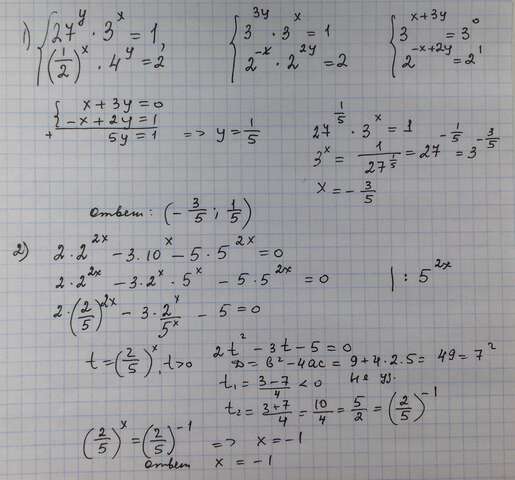 1) { 27^y · 3^x = 1,
(1/2)^x · 4^y = 2
{ 3^{3y} · 3^x = 1
2^{-x} · 2^{2y} = 2
{ 3^{x+3y} = 3^0
2^{-x+2y} = 2^1
{ x + 3y = 0
+ -x + 2y = 1
5y = 1 => y = 1/5
27^{1/5} · 3^x = 1
3^x = 1/27^{1/5} = 27^{-1/5} = 3^{-3/5}
x = -3/5
ответ: (-3/5; 1/5)
2) 2·2^{2x} - 3·10^x - 5·5^{2x} = 0
2·2^{2x} - 3·2^x · 5^x - 5·5^{2x} = 0 | : 5^{2x}
2·(2/5)^{2x} - 3·2^x/5^x - 5 = 0
t = (2/5)^x, t>0 2t^2 - 3t - 5 = 0
D = b^2 - 4ac = 9+4·2·5 = 49 = 7^2
t_1 = (3-7)/4 < 0 не уз.
t_2 = (3+7)/4 = 10/4 = 5/2 = (2/5)^{-1}
(2/5)^x = (2/5)^{-1} => x = -1
ответ x = -1